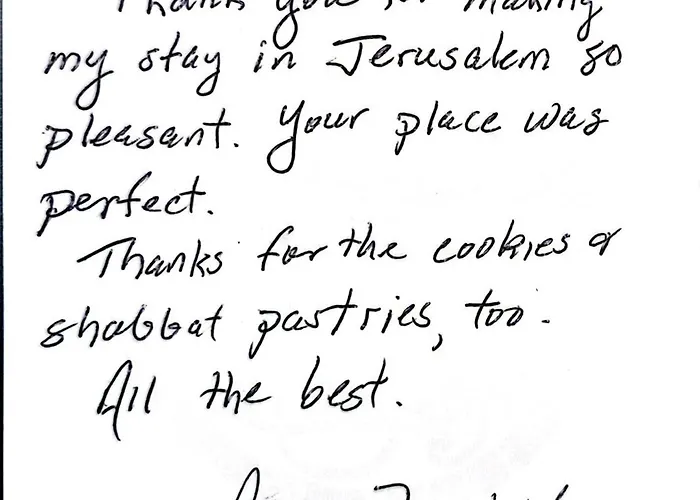 Thank you for making
my stay in Jerusalem so
pleasant. Your place was
perfect.
Thanks for the cookies &
shabbat pastries, too.
All the best.